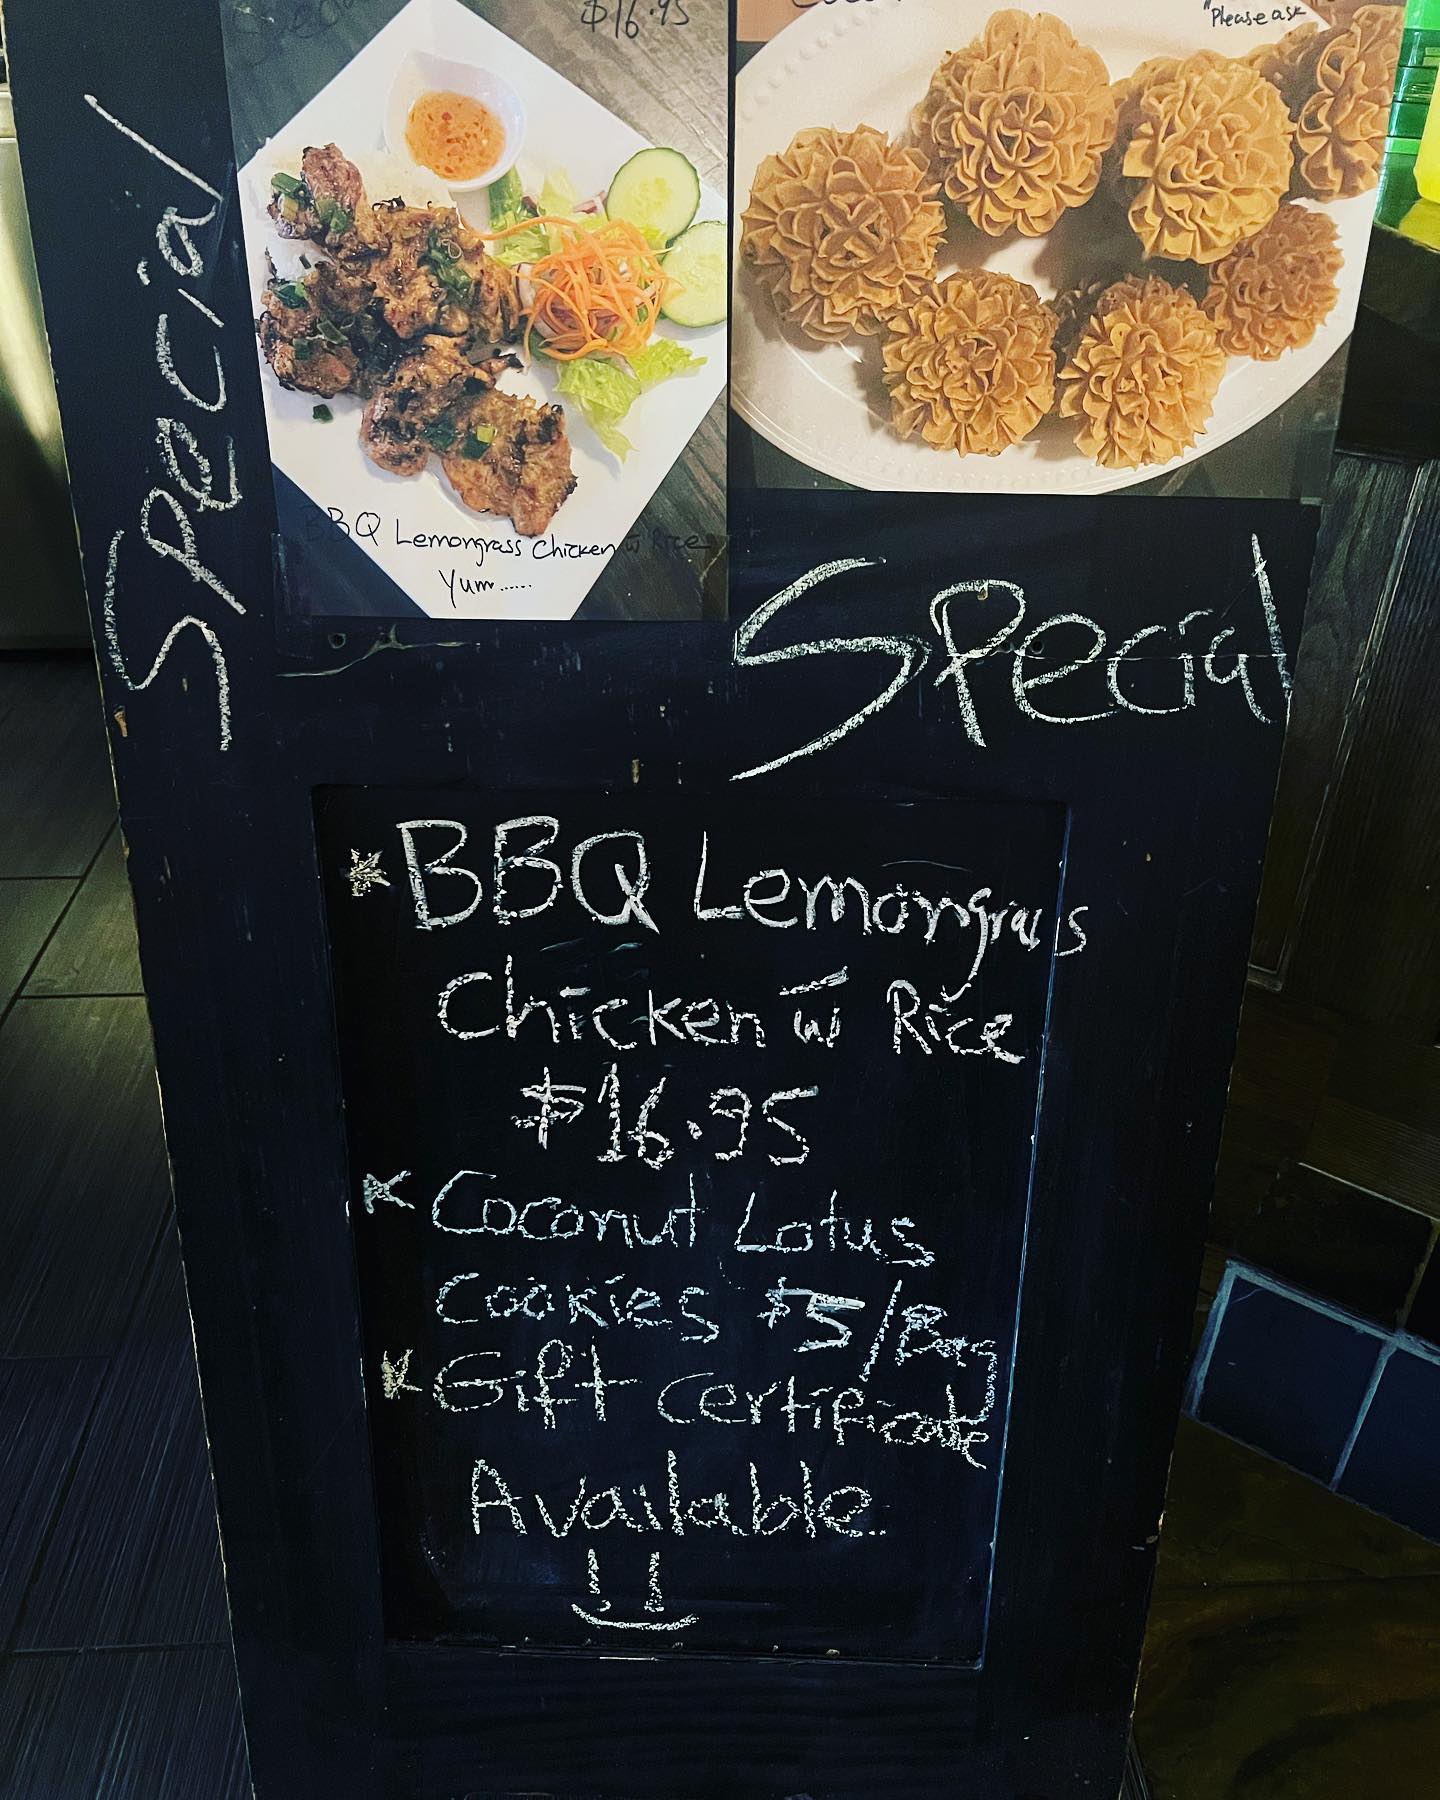 $16.95
"Please ask
Special
BBQ Lemongrass Chicken w̅ Rice
Yum......
Special
*BBQ Lemongrass
Chicken w̅ Rice
$16.95
*Coconut Lotus
Cookies $5/Bag
*Gift Certificate
Available